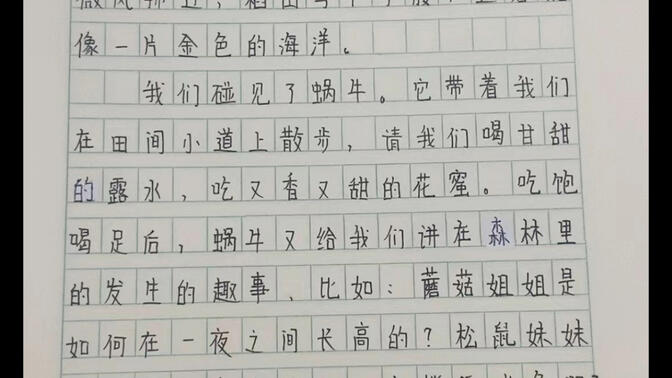 像一片金色的海洋。
我们碰见了蜗牛。它带着我们
在田间小道上散步,请我们喝甘甜
的露水,吃又香又甜的花蜜。吃饱
喝足后,蜗牛又给我们讲在森林里
的发生的趣事、比如:蘑菇姐姐是
如何在一夜之间长高的?松鼠妹妹